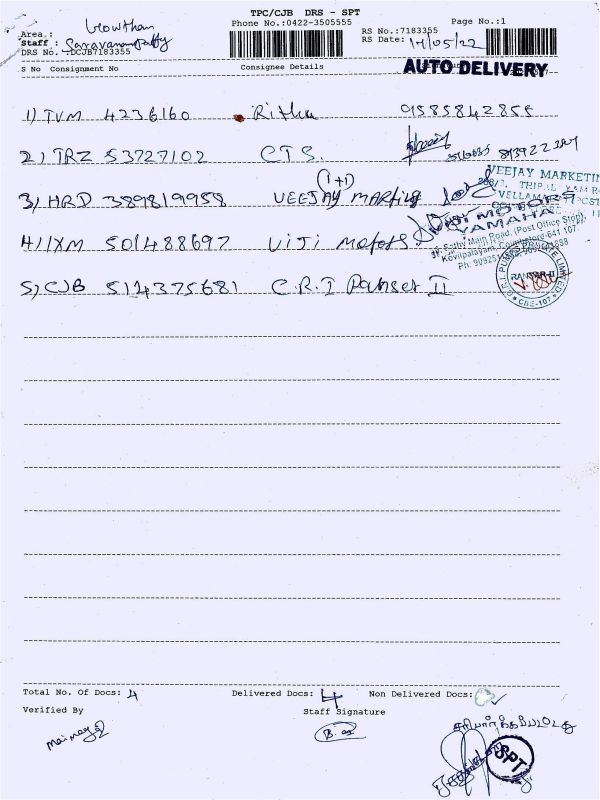 TPC/CJB DRS - SPT
Phone No.:0422-3505555
Page No.:1
Gowtham
Area.:
RS No.:7183355
Staff :
RS Date: 14/05/22
DRS No. :DCJB7183355
S No Consignment No Consignee Details
AUTO DELIVERY
1) TVM 4236160 Ritha 9585842855
2) TRZ 53727102 C T S.
(1+1)
3) HRD 389819958 VEEJAY
VEEJAY MARKETIN
4) IXM 501488697 Viji Motors
MOTORS
YAMAHA
Sathy Main Road, (Post Office Stop),
Kovilpalayam, Coimbatore-641 107.
5) CJB 514375681 C.R.I Pumset II
C.R.I. PUMPS PRIVATE LIMITED
CBE-107
Total No. Of Docs: 4 Delivered Docs: 4 Non Delivered Docs:
Verified By Staff Signature
சரிபார்க்கப்பட்டது
SPT